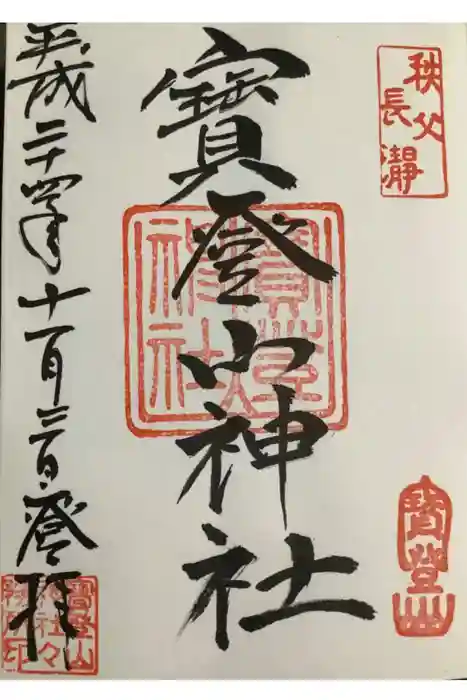 秩父
長瀞
寶登山
寶登山神社
寶登山神社
平成二十四年十一月三日登拝
寶登山
神社々
務所印